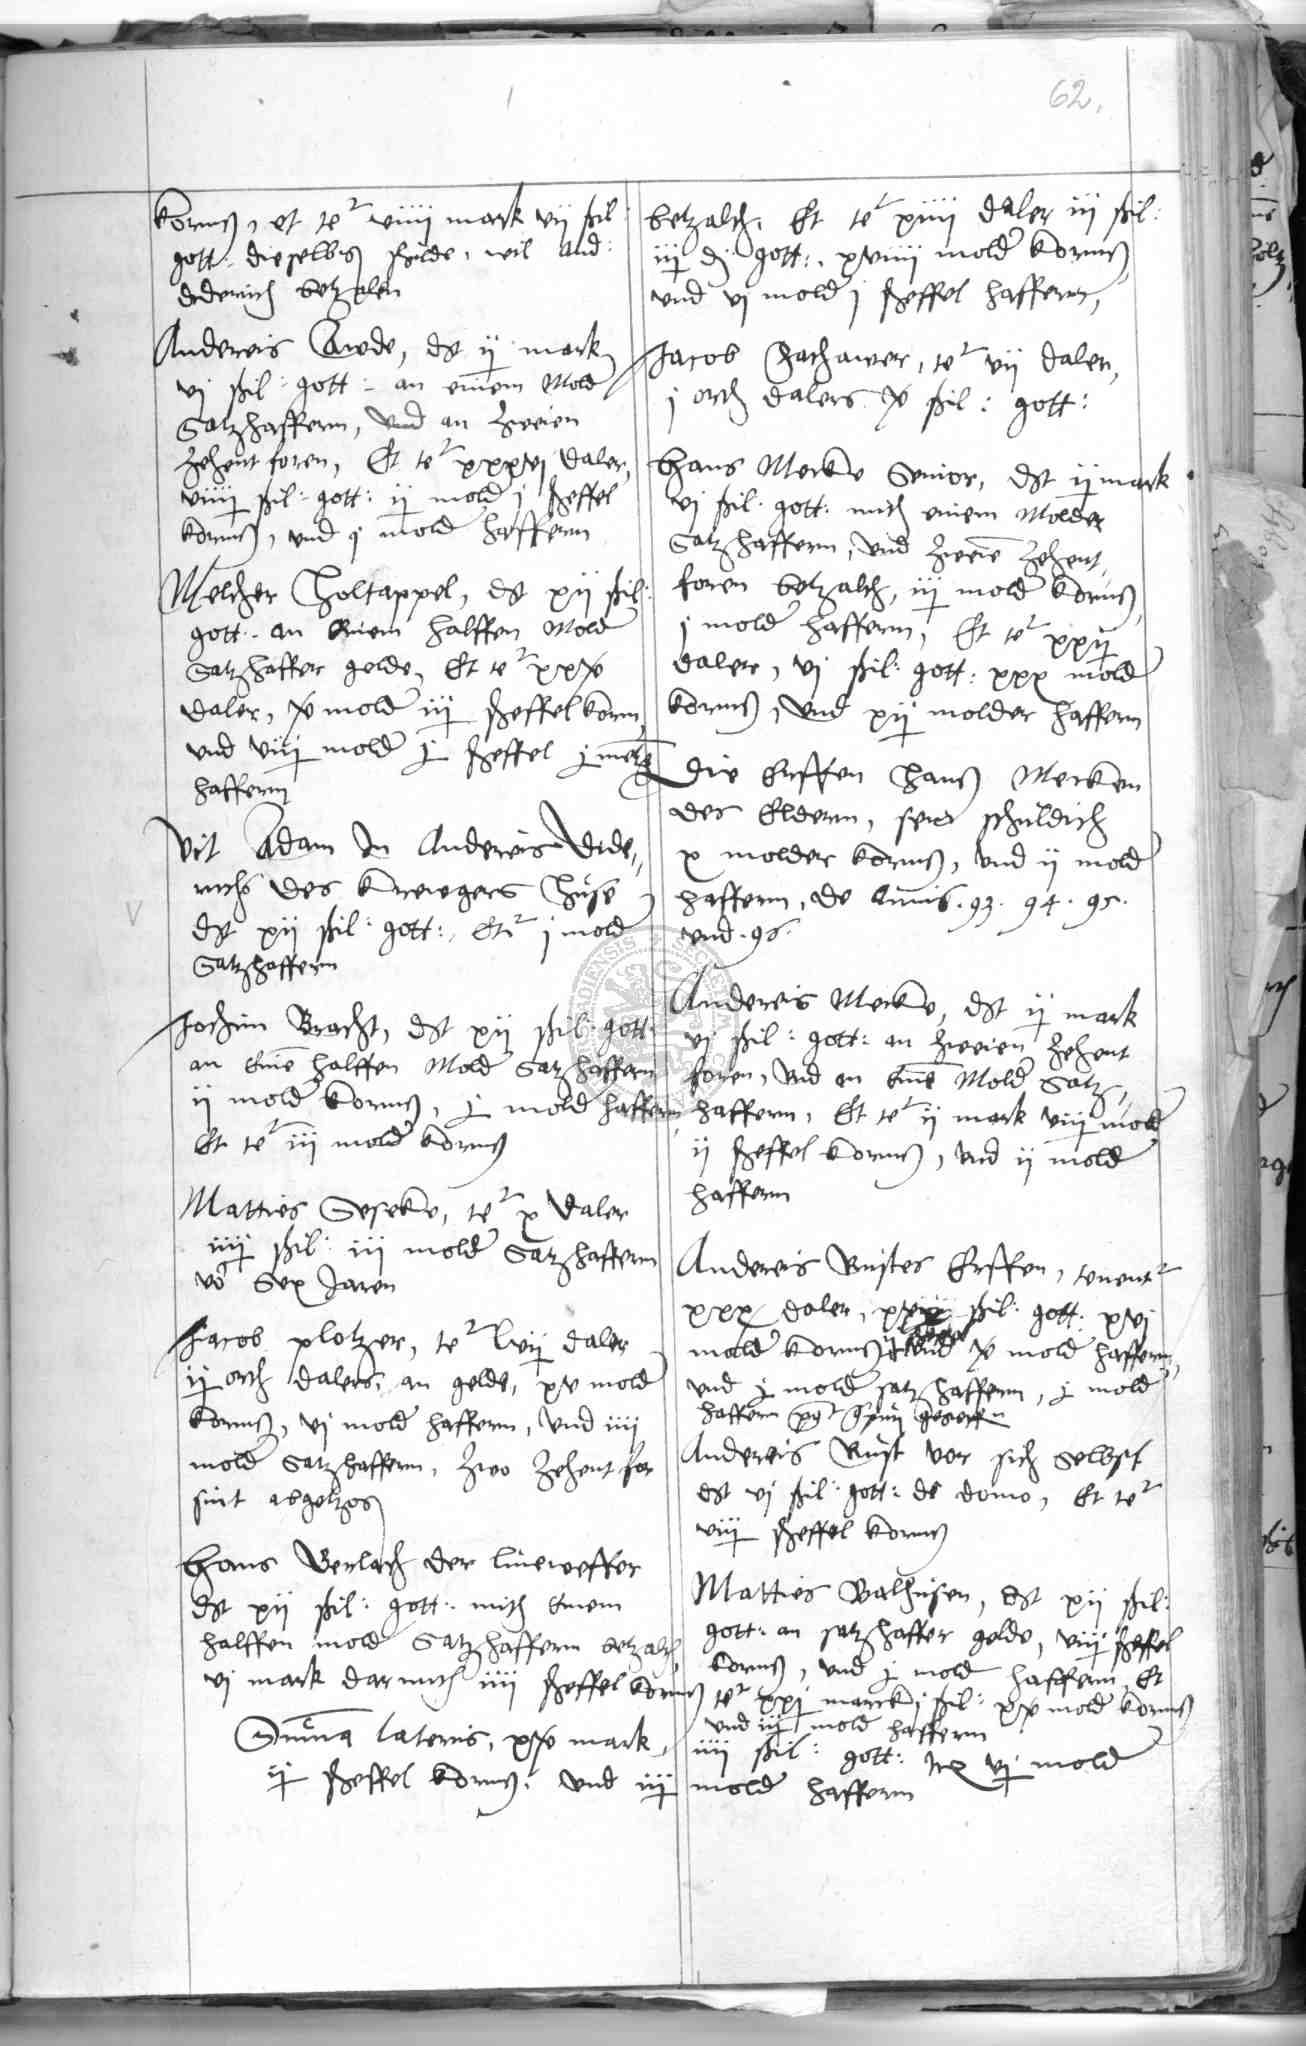 62.
korns, et te² viiii mark vii schil:
gott: dieselbs schilde, wil And:
diderich betzalen
Andereis Lwede, dt ij mark
vj schil: gott: an einem Mold
Satzhaffern, vnd an zweien
zehent foren, Et te² xxxvj daler,
viiij schil: gott: ij mold j scheffel
korns, vnd j mold haffern
Melcher Holtappel, dt xij schil:
gott: an einem halffen Mold
Satzhaffer gelde, Et te² xxx
daler, x mold iij scheffel korn,
vnd viij mold j scheffel j metz
haffern
Vit Adam In Andereis Dide,,
richs des kreugers Huse
dt xij schil: gott:, Et² j mold
Satzhaffern
Jochim Bracht, dt xij schil: gott:
an eine halffen Mold Satzhaffern
ij mold korns, j mold haffern,
Et te² iii mold korns
Matties Seseke, te² x daler
iiij schil: iii mold Satzhaffern
vo Sex Jaren
Jacob plotzer, te² lvij daler
ij orth dalers, an gelde, xv mold
korns, vj mold haffern, vnd iiii
mold Satzhaffern, zwo zehent for
sint abgetzog
Hans Gerlach der lineweffer
dt xij schil: gott: mith einem
halffen mold Satzhaffern betzalt,
vj mark darmith iiii scheffel korns
Summa lateris, xx mark,
ij scheffel korns. vnd iij
betzalth. Et te² xiiii daler iij schil:
iij d gott:. xviiii mold korns,
vnd vj mold j scheffel haffern,
Jacob Hachawer, te² vij daler,
j orth dalers x schil: gott:
Hans Mercke Senior, dt ij mark
vj schil: gott: mith einem Molder
Satzhaffern, vnd zweie zehent,
foren betzalth, iij mold korns,
j mold haffern, Et te² xxij
daler, vj schil: gott: xxx mold
korns, vnd xij molder haffern
Die Erffen Hans Mercken
des Eldern, sein schuldich
x molder korns, vnd ij mold
haffern, de Annis. 93. 94. 95.
vnd. 96.
Andereis Mercke, dt ij mark
vj schil: gott: an zweien zehent
foren, vnd an eine Mold Satz,
haffern, Et te² ij mark viij mold
ij scheffel korns, vnd ij mold
haffern
Andereis Rustes Erffen, tenent²
xxx daler, schil: gott: xvj
mold korns vnd x mold haffern,
vnd j mold satzhaffern, j mold
haffern
Andereis Rust vor sich selbst
dt vj schil: gott: de domo, Et te²
viij scheffel korns
Matties Balhusen, dt xij schil:
gott: an satzhaffer gelde, viij scheffel
korns, vnd j mold haffern, Et
te² xxj marck j schil: xx mold korns
vnd iij mold haffern
iiii schil: gott: vj mold
mold haffern